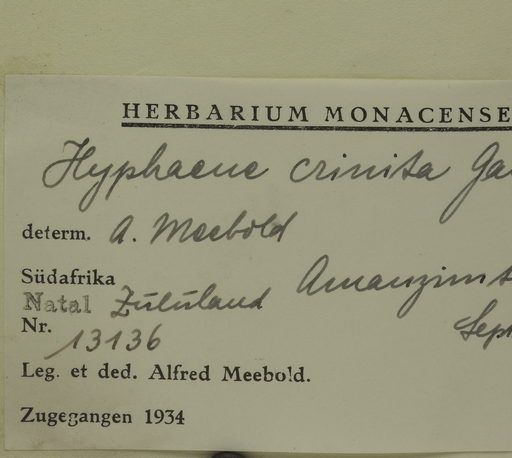 HERBARIUM MONACENSE
Hyphaene crinita Ga
determ. A. Meebold
Südafrika
Natal Zululand Amanzimt
Nr. 13136 Sept
Leg. et ded. Alfred Meebold.
Zugegangen 1934